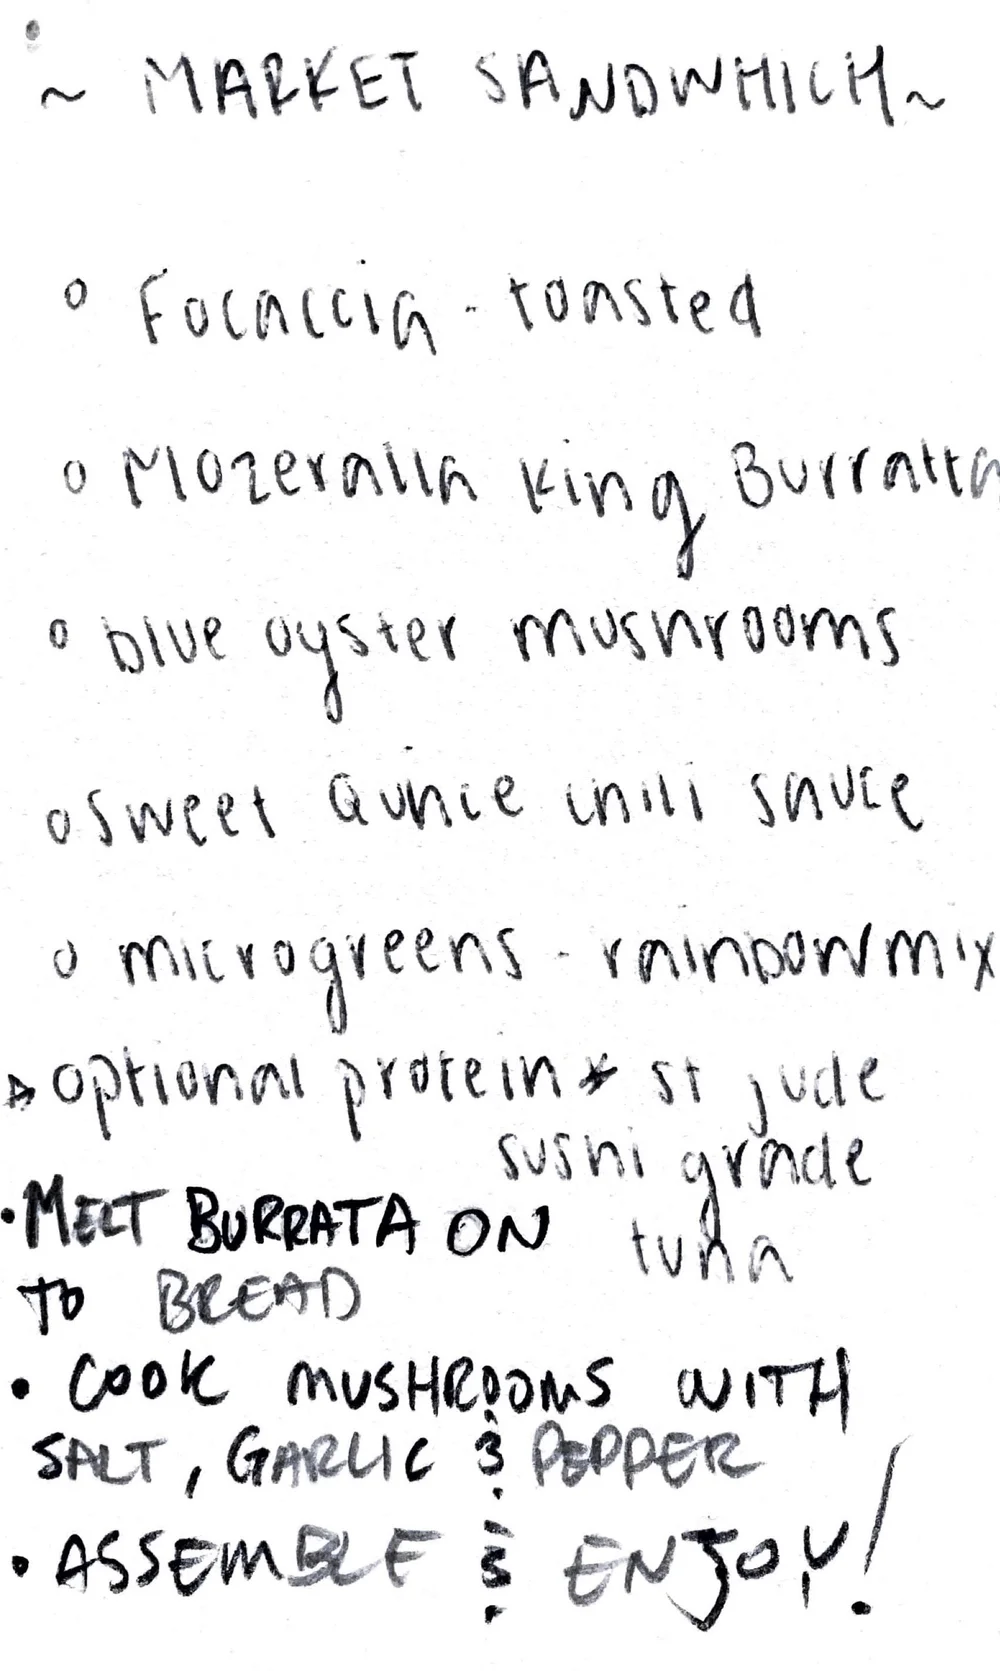 ~ MARKET SANDWHICH ~
o Focaccia - toasted
o Mozeralla King Burratta
o blue oyster mushrooms
o sweet Qunice chili sauce
o microgreens - rainbow mix
▷ optional protein * st jude
sushi grade
tuna
• MELT BURRATA ON
TO BREAD
• COOK MUSHROOMS WITH
SALT, GARLIC & PEPPER
• ASSEMBLE & ENJOY!